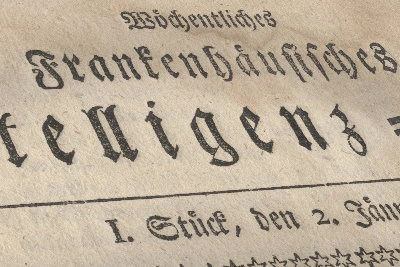 Wöchentliches
Frankenhäusisches
telligenz=
I. Stück, den 2. Jänn